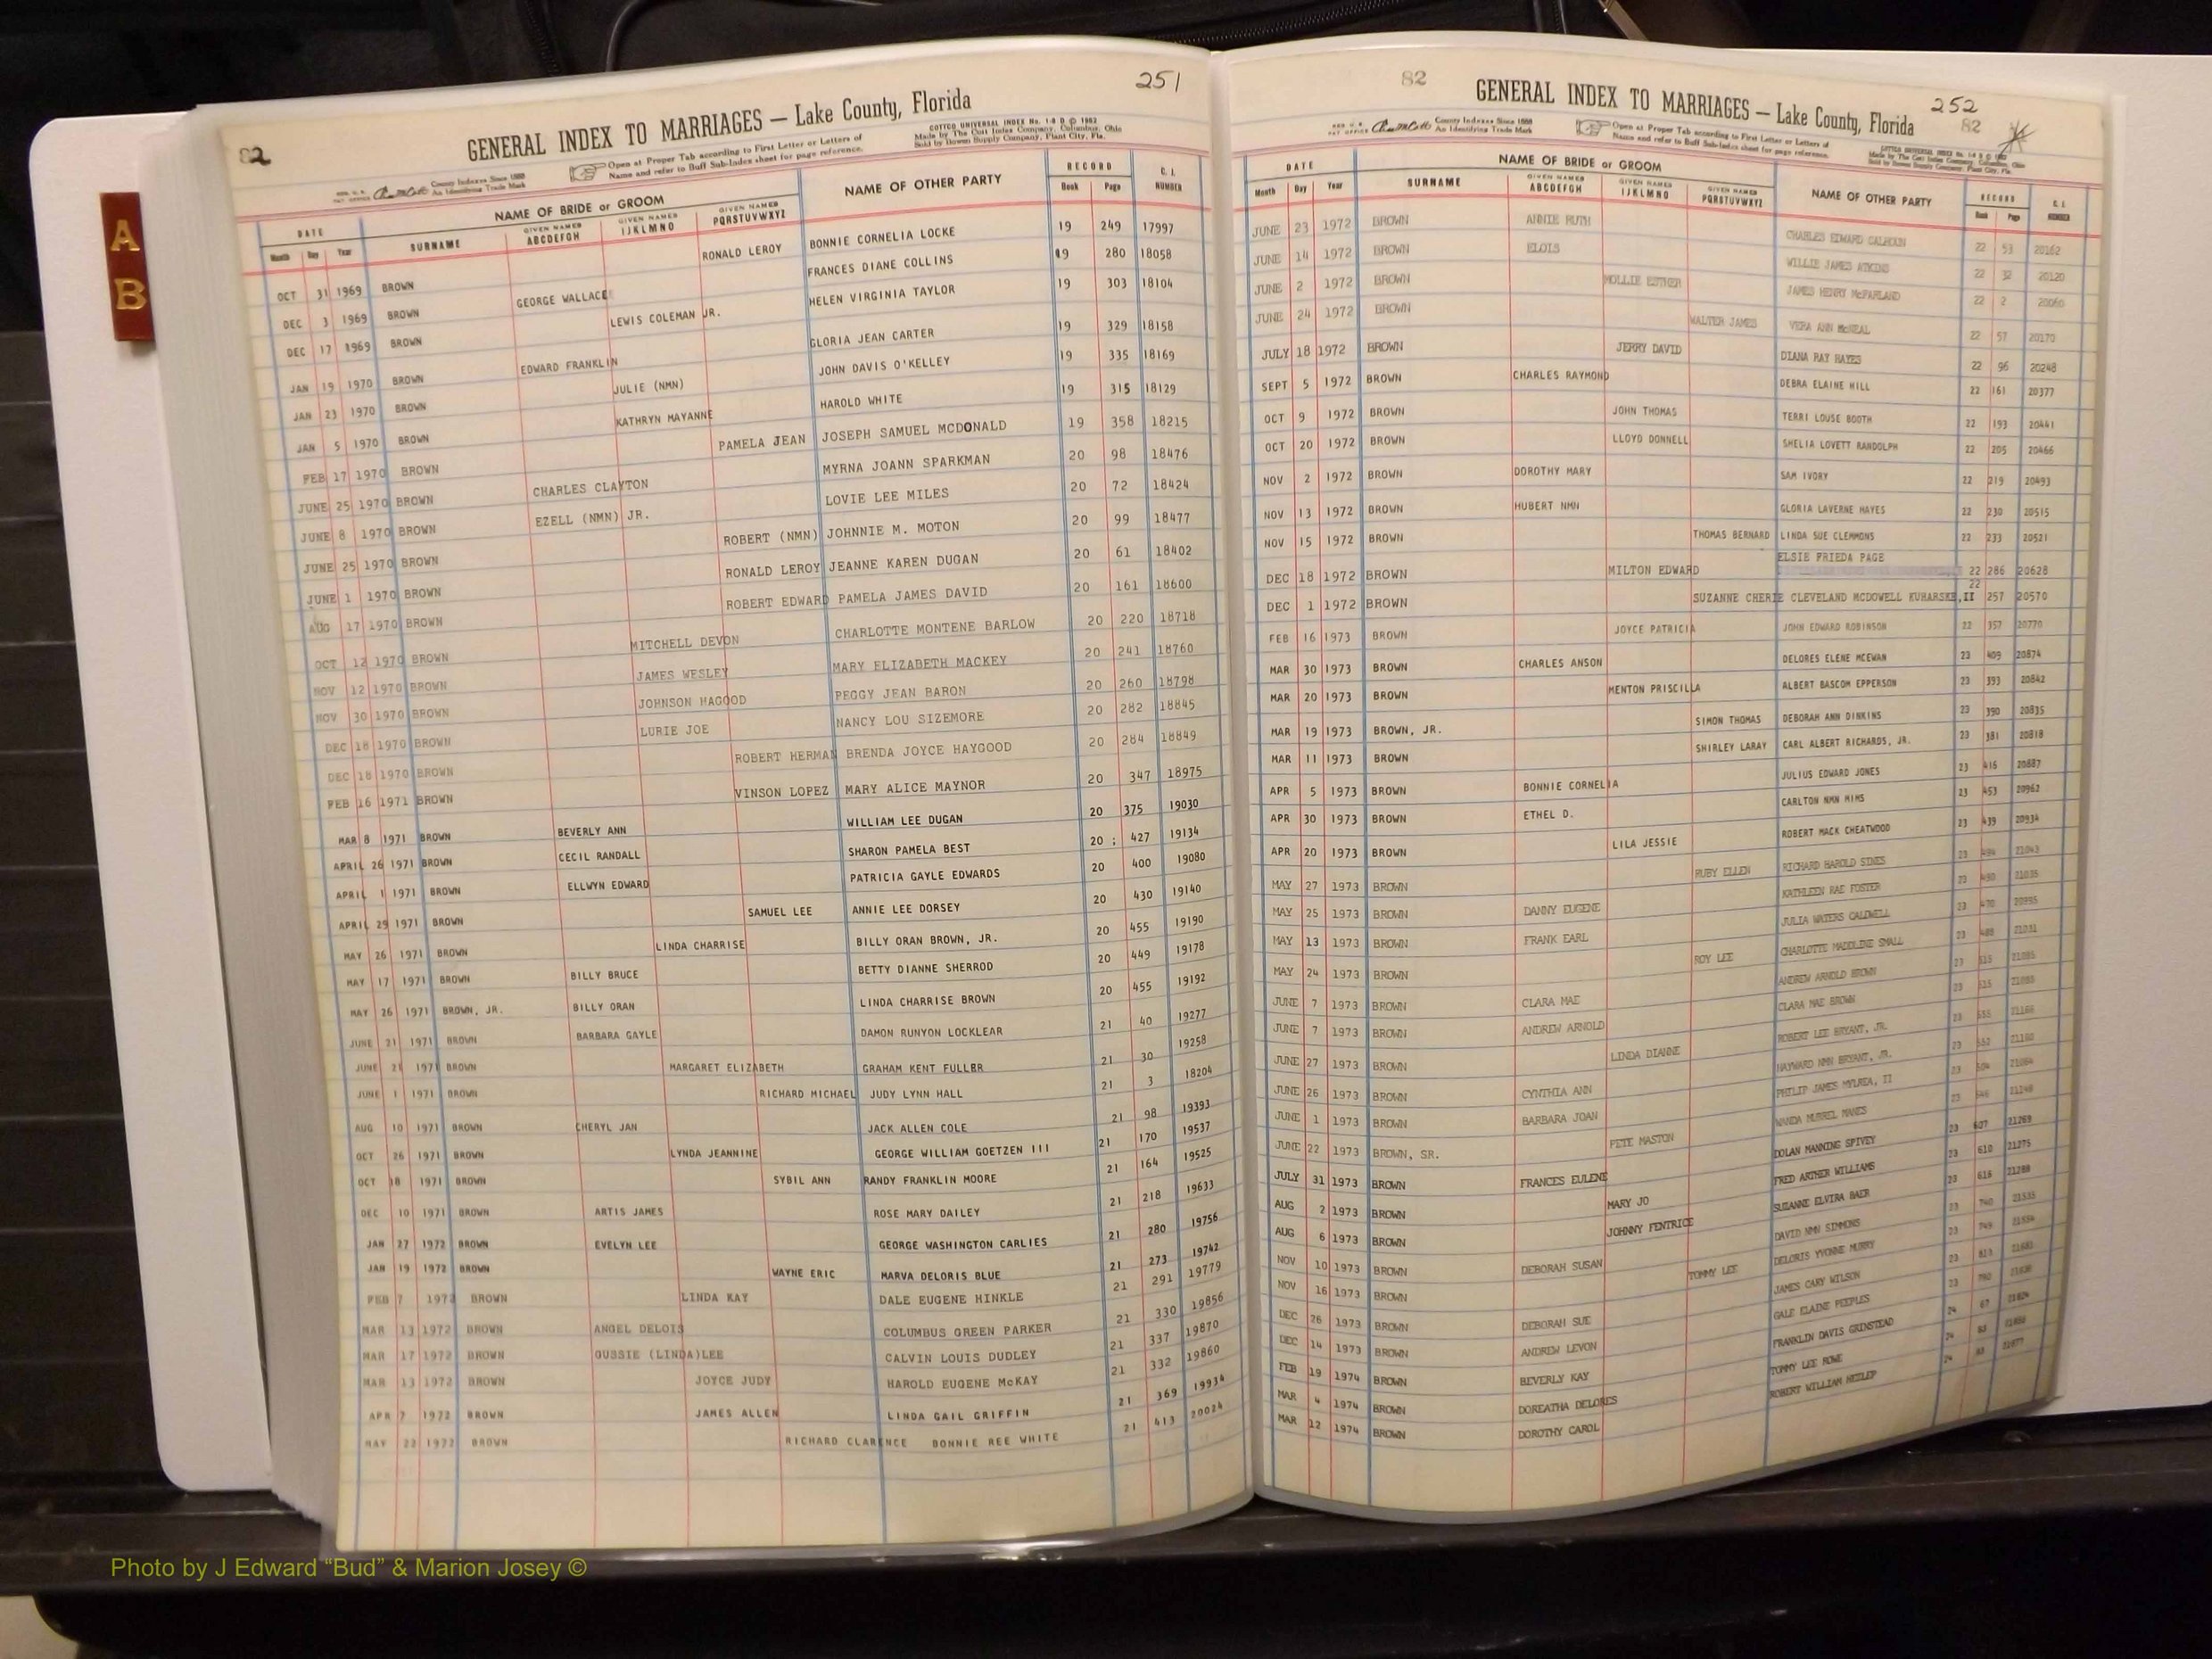 A
B
82
251
GENERAL INDEX TO MARRIAGES — Lake County, Florida
COTTCO UNIVERSAL INDEX No. 1-8 D © 1962
Made by The Cott Index Company, Columbus, Ohio
Sold by Dowen Supply Company, Plant City, Fla.
County Indexes Since 1888
An Identifying Trade Mark
Open at Proper Tab according to First Letter or Letters of
Name and refer to Buff Sub-Index sheet for page reference.
DATE NAME OF BRIDE or GROOM NAME OF OTHER PARTY RECORD C. I. NUMBER
Month Day Year SURNAME GIVEN NAMES ABCDEFGH GIVEN NAMES IJKLMNO GIVEN NAMES PQRSTUVWXYZ Book Page
OCT 31 1969 BROWN RONALD LEROY BONNIE CORNELIA LOCKE 19 249 17997
DEC 3 1969 BROWN GEORGE WALLACE FRANCES DIANE COLLINS 19 280 18058
DEC 17 1969 BROWN LEWIS COLEMAN JR. HELEN VIRGINIA TAYLOR 19 303 18104
JAN 19 1970 BROWN EDWARD FRANKLIN GLORIA JEAN CARTER 19 329 18158
JAN 23 1970 BROWN JULIE (NMN) JOHN DAVIS O'KELLEY 19 335 18169
JAN 5 1970 BROWN KATHRYN MAYANNE HAROLD WHITE 19 315 18129
FEB 17 1970 BROWN PAMELA JEAN JOSEPH SAMUEL MCDONALD 19 358 18215
JUNE 25 1970 BROWN CHARLES CLAYTON MYRNA JOANN SPARKMAN 20 98 18476
JUNE 8 1970 BROWN EZELL (NMN) JR. LOVIE LEE MILES 20 72 18424
JUNE 25 1970 BROWN ROBERT (NMN) JOHNNIE M. MOTON 20 99 18477
JUNE 1 1970 BROWN RONALD LEROY JEANNE KAREN DUGAN 20 61 18402
AUG 17 1970 BROWN ROBERT EDWARD PAMELA JAMES DAVID 20 161 18600
OCT 12 1970 BROWN MITCHELL DEVON CHARLOTTE MONTENE BARLOW 20 220 18718
NOV 12 1970 BROWN JAMES WESLEY MARY ELIZABETH MACKEY 20 241 18760
NOV 30 1970 BROWN JOHNSON HAGOOD PEGGY JEAN BARON 20 260 18798
DEC 18 1970 BROWN LURIE JOE NANCY LOU SIZEMORE 20 282 18845
DEC 18 1970 BROWN ROBERT HERMAN BRENDA JOYCE HAYGOOD 20 284 18849
FEB 16 1971 BROWN VINSON LOPEZ MARY ALICE MAYNOR 20 347 18975
MAR 8 1971 BROWN BEVERLY ANN WILLIAM LEE DUGAN 20 375 19030
APRIL 26 1971 BROWN CECIL RANDALL SHARON PAMELA BEST 20 427 19134
APRIL 1 1971 BROWN ELLWYN EDWARD PATRICIA GAYLE EDWARDS 20 400 19080
APRIL 29 1971 BROWN SAMUEL LEE ANNIE LEE DORSEY 20 430 19140
MAY 26 1971 BROWN LINDA CHARRISE BILLY ORAN BROWN, JR. 20 455 19190
MAY 17 1971 BROWN BILLY BRUCE BETTY DIANNE SHERROD 20 449 19178
MAY 26 1971 BROWN, JR. BILLY ORAN LINDA CHARRISE BROWN 20 455 19192
JUNE 21 1971 BROWN BARBARA GAYLE DAMON RUNYON LOCKLEAR 21 40 19277
JUNE 1971 BROWN MARGARET ELIZABETH GRAHAM KENT FULLER 21 30 19258
JUNE 1 1971 BROWN RICHARD MICHAEL JUDY LYNN HALL 21 3 18204
AUG 10 1971 BROWN CHERYL JAN JACK ALLEN COLE 21 98 19393
OCT 26 1971 BROWN LYNDA JEANNINE GEORGE WILLIAM GOETZEN III 21 170 19537
OCT 18 1971 BROWN SYBIL ANN RANDY FRANKLIN MOORE 21 164 19525
DEC 10 1971 BROWN ARTIS JAMES ROSE MARY DAILEY 21 218 19633
JAN 27 1972 BROWN EVELYN LEE GEORGE WASHINGTON CARLIES 21 280 19756
JAN 19 1972 BROWN WAYNE ERIC MARVA DELORIS BLUE 21 273 19742
FEB 7 1972 BROWN LINDA KAY DALE EUGENE HINKLE 21 291 19779
MAR 13 1972 BROWN ANGEL DELOIS COLUMBUS GREEN PARKER 21 330 19856
MAR 17 1972 BROWN GUSSIE (LINDA)LEE CALVIN LOUIS DUDLEY 21 337 19870
MAR 13 1972 BROWN JOYCE JUDY HAROLD EUGENE McKAY 21 332 19860
APR 7 1972 BROWN JAMES ALLEN LINDA GAIL GRIFFIN 21 369 19934
MAY 22 1972 BROWN RICHARD CLARENCE BONNIE REE WHITE 21 413 20024
82
252
82
GENERAL INDEX TO MARRIAGES — Lake County, Florida
County Indexes Since 1888
An Identifying Trade Mark
Open at Proper Tab according to First Letter or Letters of
Name and refer to Buff Sub-Index sheet for page reference.
DATE NAME OF BRIDE or GROOM NAME OF OTHER PARTY RECORD C. I. NUMBER
Month Day Year SURNAME GIVEN NAMES ABCDEFGH GIVEN NAMES IJKLMNO GIVEN NAMES PQRSTUVWXYZ Book Page
JUNE 23 1972 BROWN ANNIE RUTH CHARLES EDWARD CALHOUN 22 53 20162
JUNE 14 1972 BROWN ELOIS WILLIE JAMES ATKINS 22 32 20120
JUNE 2 1972 BROWN MOLLIE ESTHER JAMES HENRY McFARLAND 22 2 20060
JUNE 24 1972 BROWN WALTER JAMES VERA ANN McNEAL 22 57 20170
JULY 18 1972 BROWN JERRY DAVID DIANA RAY HAYES 22 96 20248
SEPT 5 1972 BROWN CHARLES RAYMOND DEBRA ELAINE HILL 22 161 20377
OCT 9 1972 BROWN JOHN THOMAS TERRI LOUSE BOOTH 22 193 20441
OCT 20 1972 BROWN LLOYD DONNELL SHELIA LOVETT RANDOLPH 22 205 20466
NOV 2 1972 BROWN DOROTHY MARY SAM IVORY 22 219 20493
NOV 13 1972 BROWN HUBERT NMN GLORIA LAVERNE HAYES 22 230 20515
NOV 15 1972 BROWN THOMAS BERNARD LINDA SUE CLEMMONS 22 233 20521
DEC 18 1972 BROWN MILTON EDWARD ELSIE FRIEDA PAGE 22 286 20628
DEC 1 1972 BROWN SUZANNE CHERIE CLEVELAND MCDOWELL KUHARSKE,II 22 257 20570
FEB 16 1973 BROWN JOYCE PATRICIA JOHN EDWARD ROBINSON 22 357 20770
MAR 30 1973 BROWN CHARLES ANSON DELORES ELENE MCEWAN 23 409 20874
MAR 20 1973 BROWN MENTON PRISCILLA ALBERT BASCOM EPPERSON 23 393 20842
MAR 19 1973 BROWN, JR. SIMON THOMAS DEBORAH ANN DINKINS 23 390 20835
MAR 11 1973 BROWN SHIRLEY LARAY CARL ALBERT RICHARDS, JR. 23 381 20818
APR 5 1973 BROWN BONNIE CORNELIA JULIUS EDWARD JONES 23 416 20887
APR 30 1973 BROWN ETHEL D. CARLTON NMN MIMS 23 453 20962
APR 20 1973 BROWN LILA JESSIE ROBERT MACK CHEATWOOD 23 439 20934
MAY 27 1973 BROWN RUBY ELLEN RICHARD HAROLD SINES 23
MAY 25 1973 BROWN DANNY EUGENE KATHLEEN RAE FOSTER 23
MAY 13 1973 BROWN FRANK EARL JULIA WATERS CALDWELL 23
MAY 24 1973 BROWN ROY LEE CHARLOTTE MADDLINE SMALL 23
JUNE 7 1973 BROWN CLARA MAE ANDREW ARNOLD BROWN 23
JUNE 7 1973 BROWN ANDREW ARNOLD CLARA MAE BROWN 23
JUNE 27 1973 BROWN LINDA DIANNE ROBERT LEE BRYANT, JR. 23
JUNE 26 1973 BROWN CYNTHIA ANN HAYWARD NMN BRYANT, JR. 23
JUNE 1 1973 BROWN BARBARA JOAN PHILIP JAMES MYLREA, II 23
JUNE 22 1973 BROWN, SR. PETE MASTON WANDA MURREL MANES 23
JULY 31 1973 BROWN FRANCES EULENE DOLAN MANNING SPIVEY 23 607 21269
AUG 2 1973 BROWN MARY JO FRED ARTHER WILLIAMS 23 610 21275
AUG 6 1973 BROWN JOHNNY FENTRICE SUZANNE ELVIRA BAER 23 616 21288
NOV 10 1973 BROWN DEBORAH SUSAN DAVID NMN SIMMONS 23
NOV 16 1973 BROWN TOMMY LEE DELORIS YVONNE MURRY 23
DEC 26 1973 BROWN DEBORAH SUE JAMES CARY WILSON 23
DEC 14 1973 BROWN ANDREW LEVON GALE ELAINE PEEPLES 23
FEB 19 1974 BROWN BEVERLY KAY FRANKLIN DAVIS GRINSTEAD 24
MAR 4 1974 BROWN DOREATHA DELORES TOMMY LEE ROWE 24
MAR 12 1974 BROWN DOROTHY CAROL ROBERT WILLIAM HEILEP 24
Photo by J Edward “Bud” & Marion Josey ©